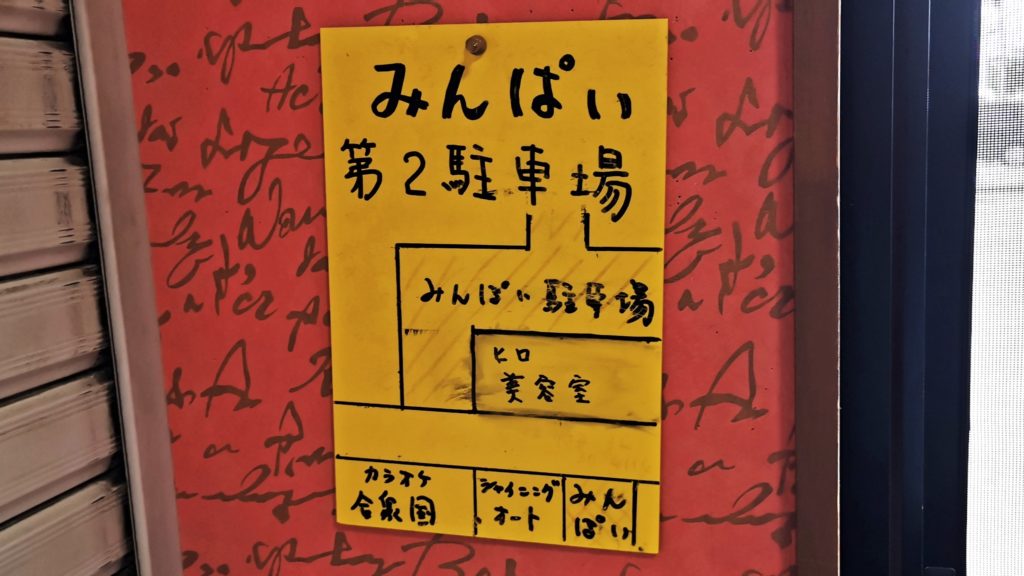 みんぱい
第2駐車場
みんぱい駐車場
ヒロ
美容室
カラオケ
合衆国
シャイニング
オート
みん
ぱい